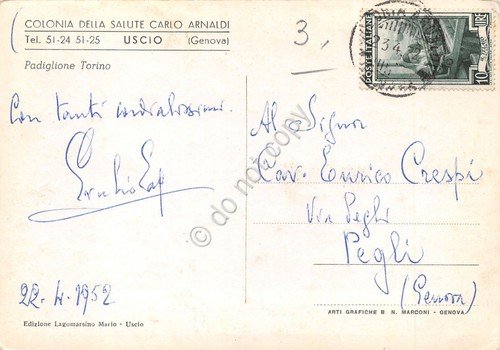 COLONIA DELLA SALUTE CARLO ARNALDI
Tel. 51-24 51-25 USCIO (Genova)
Padiglione Torino
3,
POSTE ITALIANE
10
LIRE
Con tanti cordialissimi
22.4.1952
Al Signor
Cav. Enrico Crespi
Via Pegli
Pegli
(Genova)
do not copy
Edizione Lagomarsino Mario - Uscio
ARTI GRAFICHE B. N. MARCONI - GENOVA